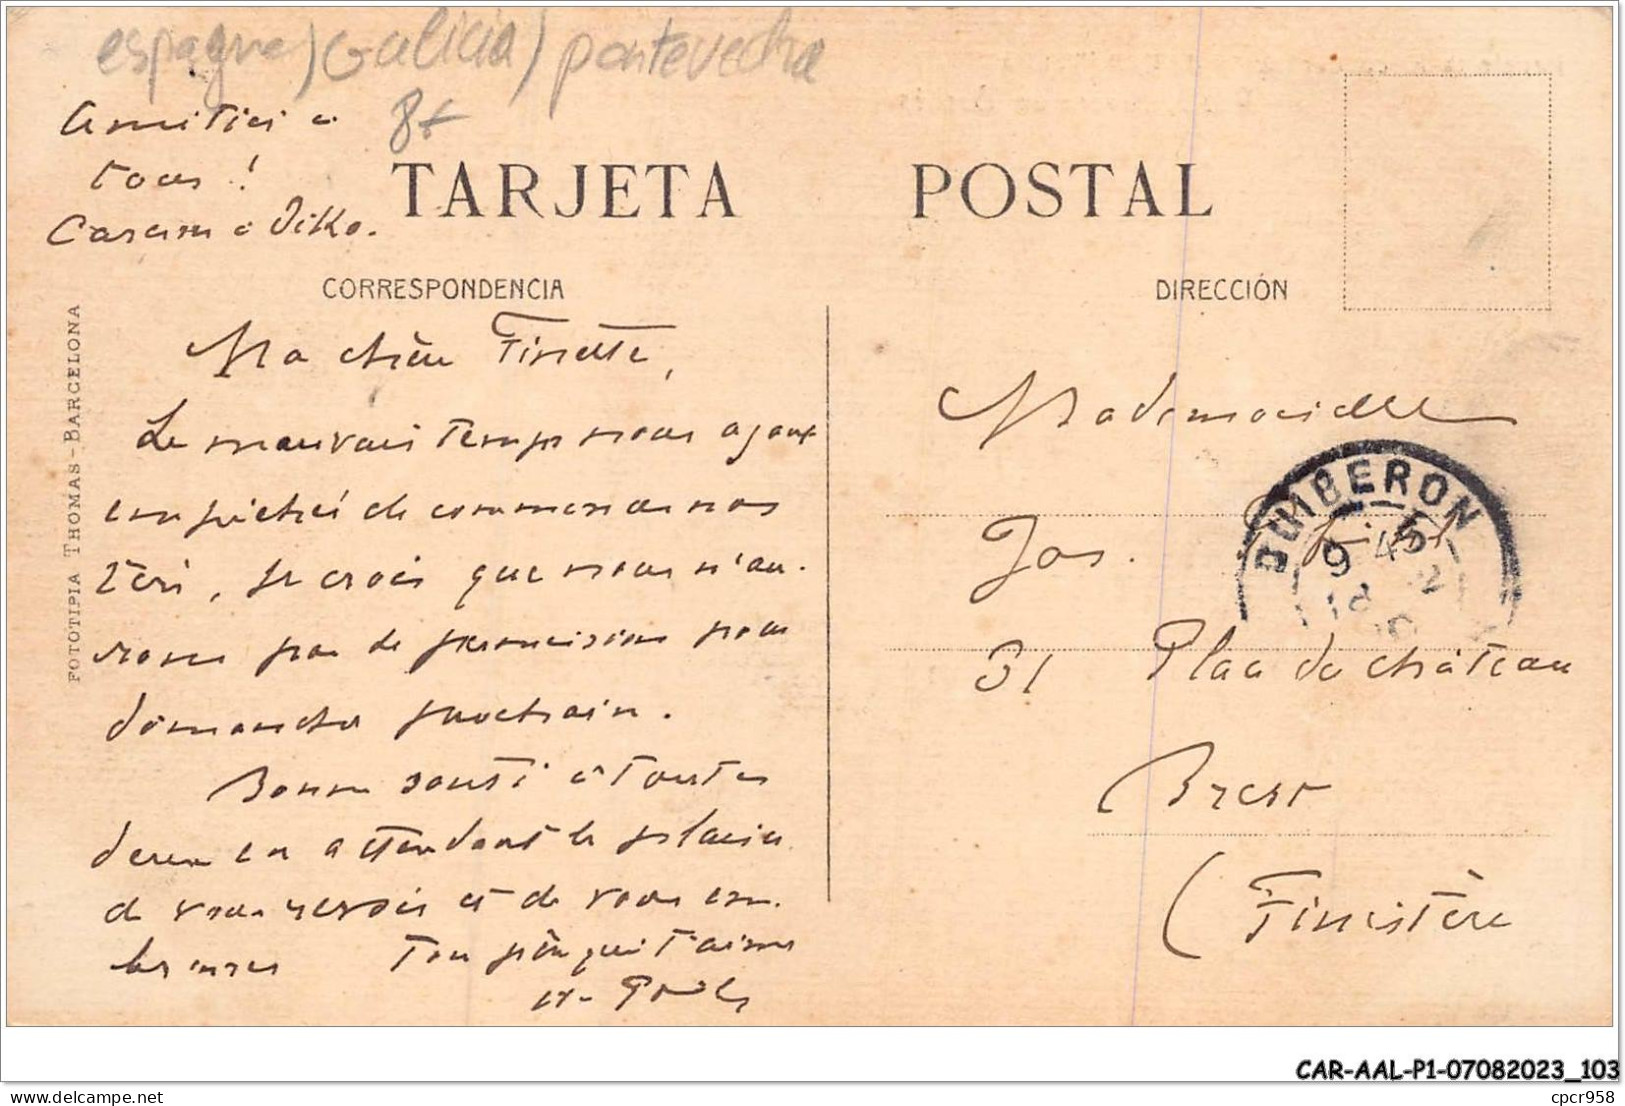 espagne) Galicia) pontevedra
8f
Amitiés à
tous !
TARJETA POSTAL
CORRESPONDENCIA
DIRECCIÓN
FOTOTIPIA THOMAS-BARCELONA
Ma chère Finette,
Le mauvais temps nous ayant
empêchés de commencer nos
tirs, je crois que nous n'au-
rons pas de permission pour
dimanche prochain.
Bonne santé à toutes
deux en attendant le plaisir
de vous revoir et de vous em-
brasser Ton père qui t'aime
Mademoiselle
Jos.
31 Place du château
Brest
(Finistère
DUMBERON
9 45
CAR-AAL-P1-07082023_103
delcampe.net
cpcr958